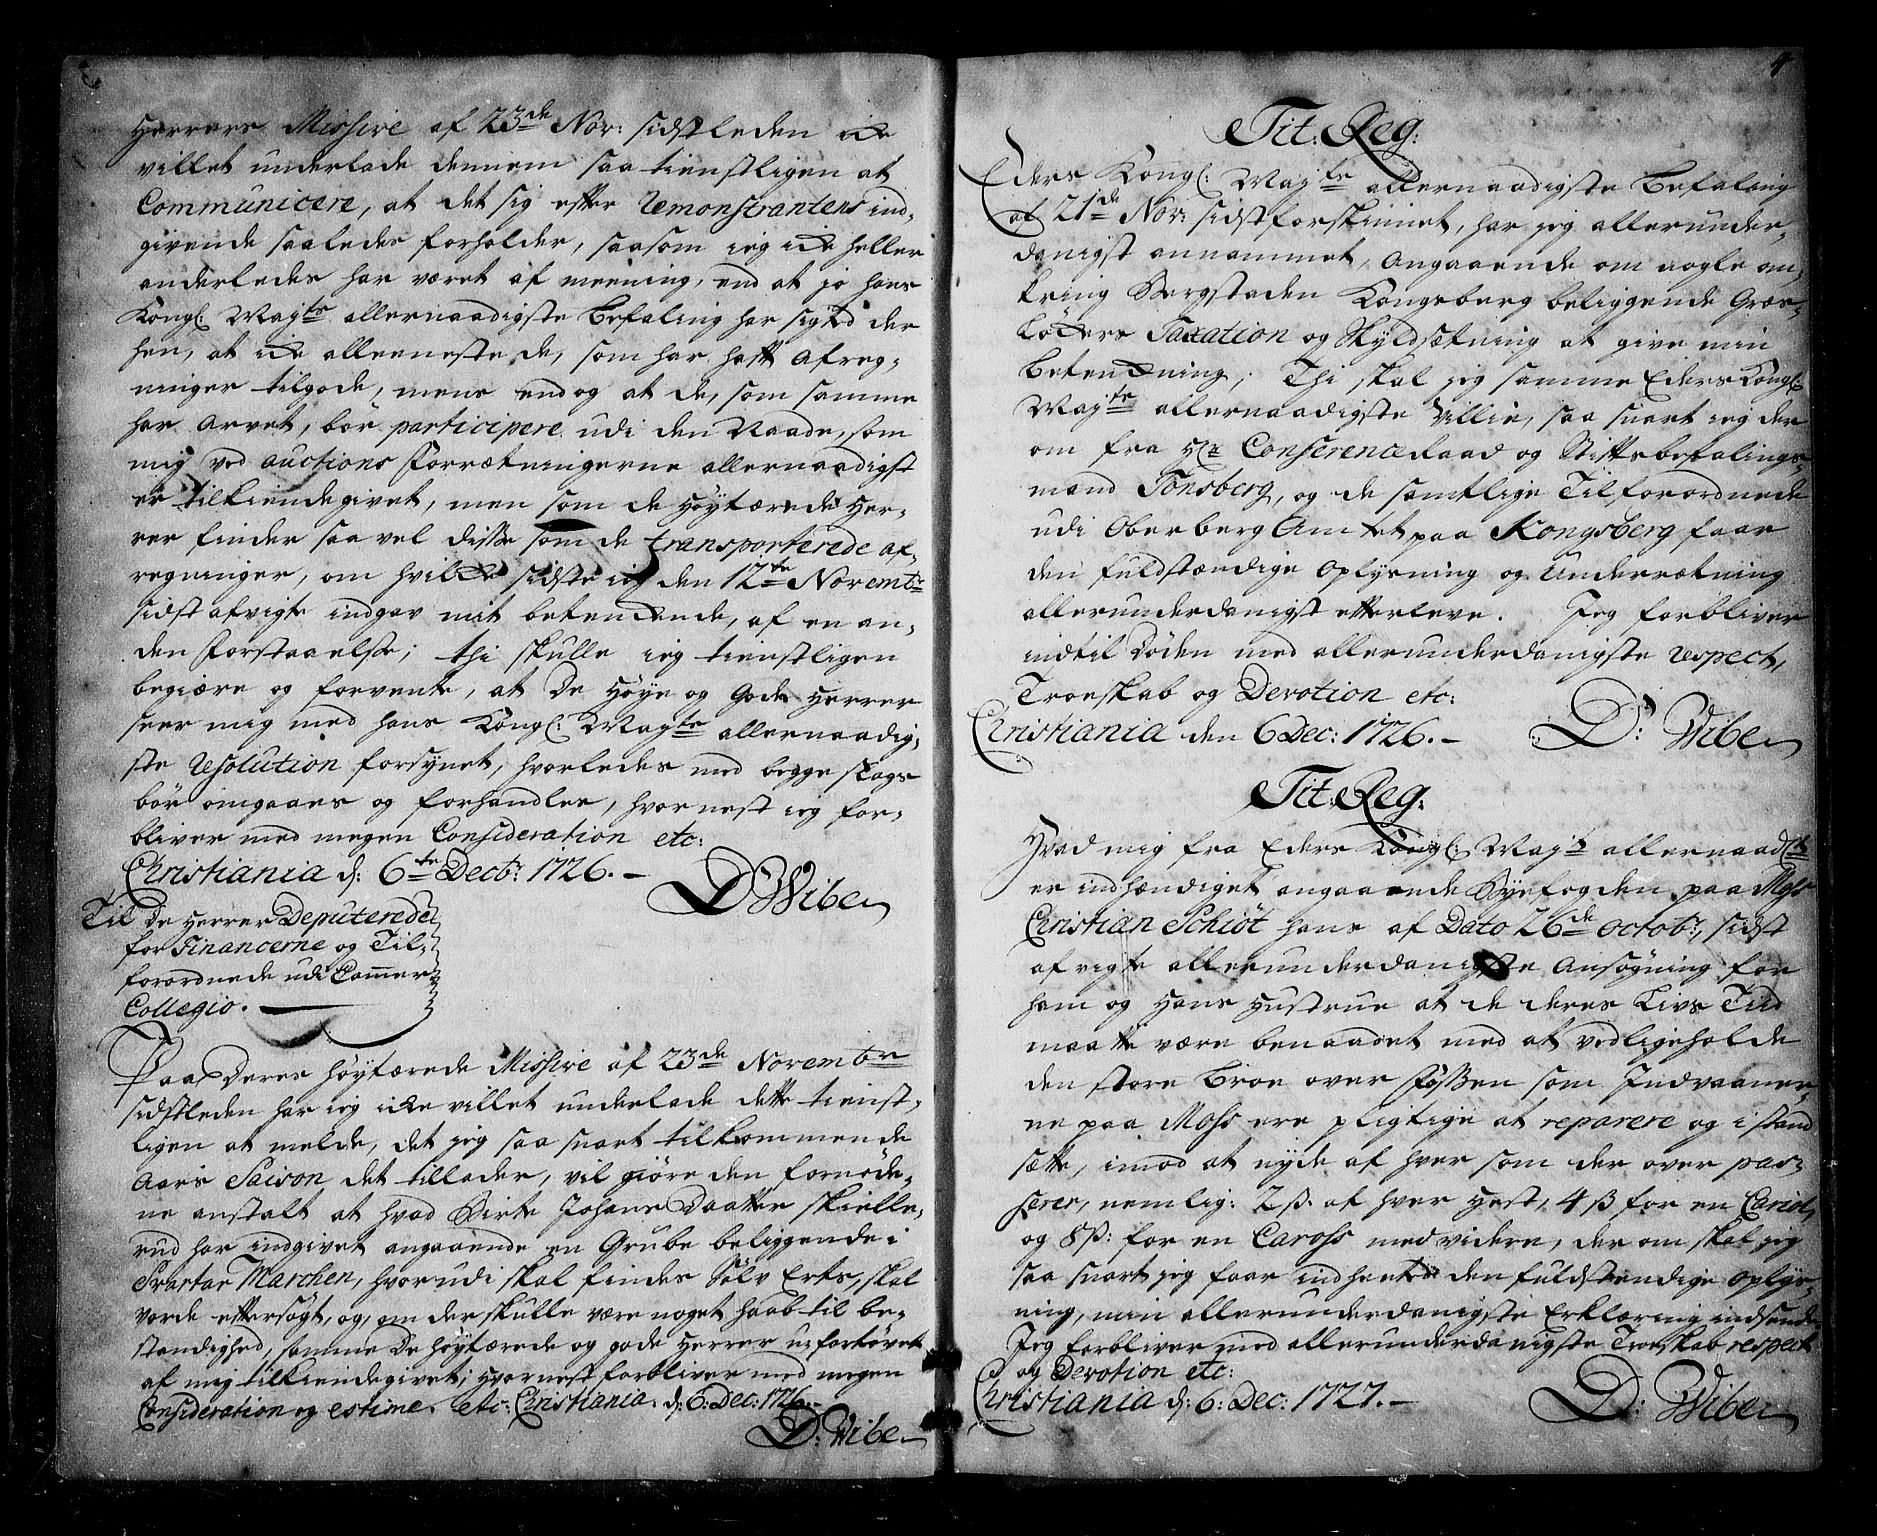 Herrers Missive af 23de Nov: sidstleden icke
villet underlade dennem saa tienstligen at
Communicere, at det sig efter Remonstrantens ind-
givende saaledes forholder, saasom ieg icke heller
anderledes har været af meening, end at jo hans
Kongl: Mayts allernaadigste Befaling har sigted der
hen, at icke alleeneste de, som har hafft Afreg-
ninger tilgode, mens endog at de, som samme
har Arvet, bör participere udi den Naade, som
mig ved auctions Forrætningerne allernaadigst
er tilkiendegivet, men som de Höytærede Her-
rer finder saavel disse som de transporterede af-
regninger, om hvilcke sidste ieg den 12te Novembr
sidst afvigte indgav mit betenckende, af en an-
den Forstaaelse; thi skulle ieg tienstligen
begiære og forvente, at De Höye og Gode Herrer
seer mig med hans Kongl: Mayts allernaadig-
ste Resolution forsynet, hvorledes med begge slags
bör omgaaes og forhandles, hvornest ieg for-
bliver med megen Consideration etc:
Christiania d: 6te Decbr: 1726. –
D Wibe
Til De Herrer Deputerede
for Financerne og Til-
forordnede udi Cammer
Collegio.
Paa Deres höytærede Missive af 23de Novembr
sidstleden har ieg icke villet underlade dette tienst-
ligen at melde, det jeg saa snart tilkommende
Aars Saison det tillader, vil giöre den fornöde-
ne anstalt at hvad Birte Johans Daatter Skielle-
rud har indgivet angaaende en Grube beliggende i
Svartar Marchen, hvorudi skal findes Sölv Erts, skal
vorde eftersögt, og, om der skulle være noget haab til be-
standighed, samme De höytærede og gode Herrer ufortövet
af mig tilkiendegivet; hvornest forbliver med megen
Consideration og estime. etc: Christiania. d: 6: Dec: 1726. –
D: Wibe
4
Tit: Reg:
Eders Kongl: Mayts allernaadigste Befaling
af 21de Nov: sidstforskinnet, har jeg allerunder-
danigst annammet, Angaaende om nogle om-
kring Bergstaden Kongsberg beliggende Græs-
löckers Taxation og Skyldsætning at give min
Betenckning; Thi skal jeg samme Eders Kongl:
Mayts allernaadigste Villie, saa snart ieg der
om fra Hr Conference Raad og Stiftsbefalings-
mand Tonsberg, og de samtlige Tilforordnede
udi Oberberg Amtet paa Kongsberg faar
den fuldstændige Oplysning og Underrætning
allerunderdanigst efterleve. Jeg forbliver
indtil Döden med allerunderdanigste respect,
Troeskab og Devotion etc:
Christiania den 6 Dec: 1726. –
D: Wibe
Tit: Reg:
Hvad mig fra Eders Kongl: Mayts allernaadst
er indhændiget angaaende Byefogden paa Moss
Christian Schiöt hans af Dato 26de Octobr: sidst
afvigte allerunderdanigste Ansögning for
ham og Hans Hustrue at de deres Livs Tiid
maatte være benaadet med at vedligeholde
den store Broe over Fossen som Indvaaner-
ne paa Moss ere pligtige at reparere og i stand
sætte, imod at nyde af hver som der over pas-
serer, nemlig: 2 ß. af hver Hest, 4 ß for en Cariol,
og 8 ß: for en Caross med videre, der om skal jeg
saa snart jeg faar indhentet den fuldstendige Oplys-
ning, min allerunderdanigste Erklæring indsende
Jeg forbliver med allerunderdanigste Troeskab respect
og Devotion etc:
Christiania d: 6: Dec: 1727. –
D: Wibe